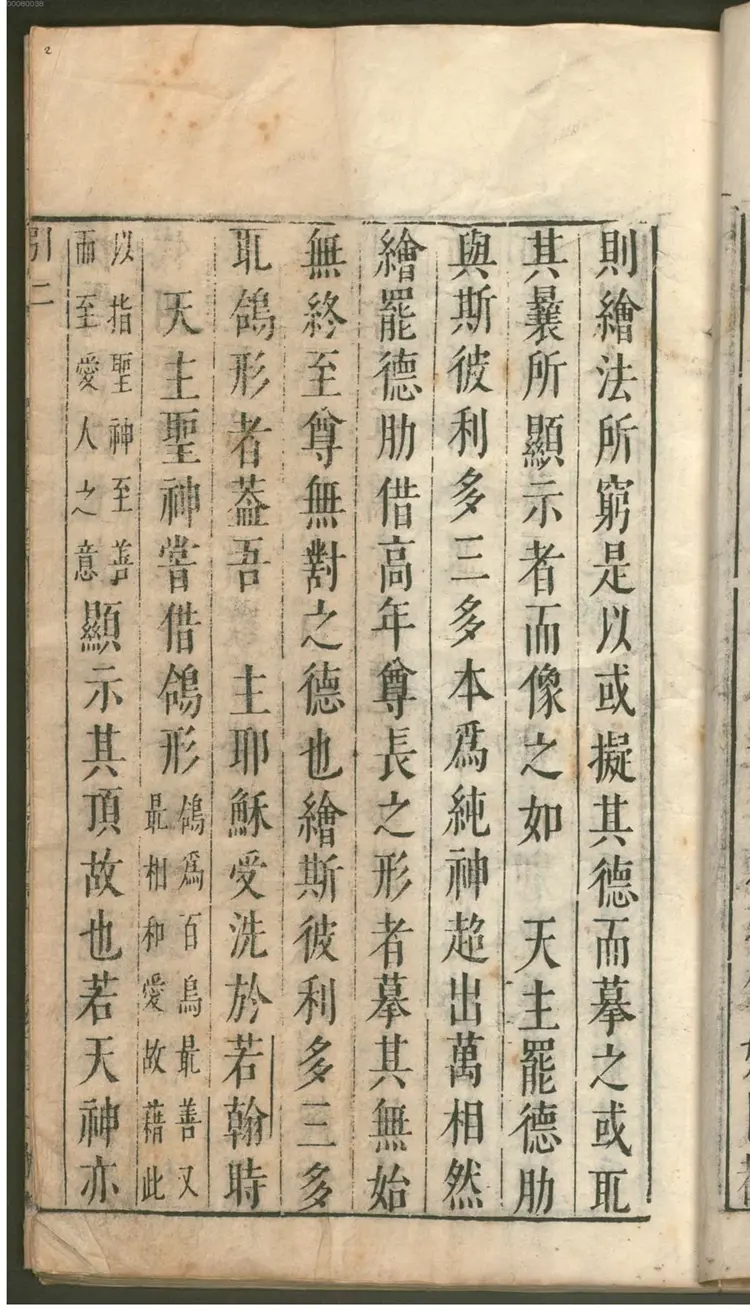 00080038
2
則繪法所窮是以或擬其德而摹之或耴
其曩所顯示者而像之如 天主罷德肋
與斯彼利多三多本爲純神超出萬相然
繪罷德肋借高年尊長之形者摹其無始
無終至尊無對之德也繪斯彼利多三多
耴鴿形者葢吾 主耶穌受洗於若翰時
天主聖神嘗借鴿形鴿爲百鳥最善又最相和愛故藉此
以指聖神至善而至愛人之意顯示其頂故也若天神亦
引二